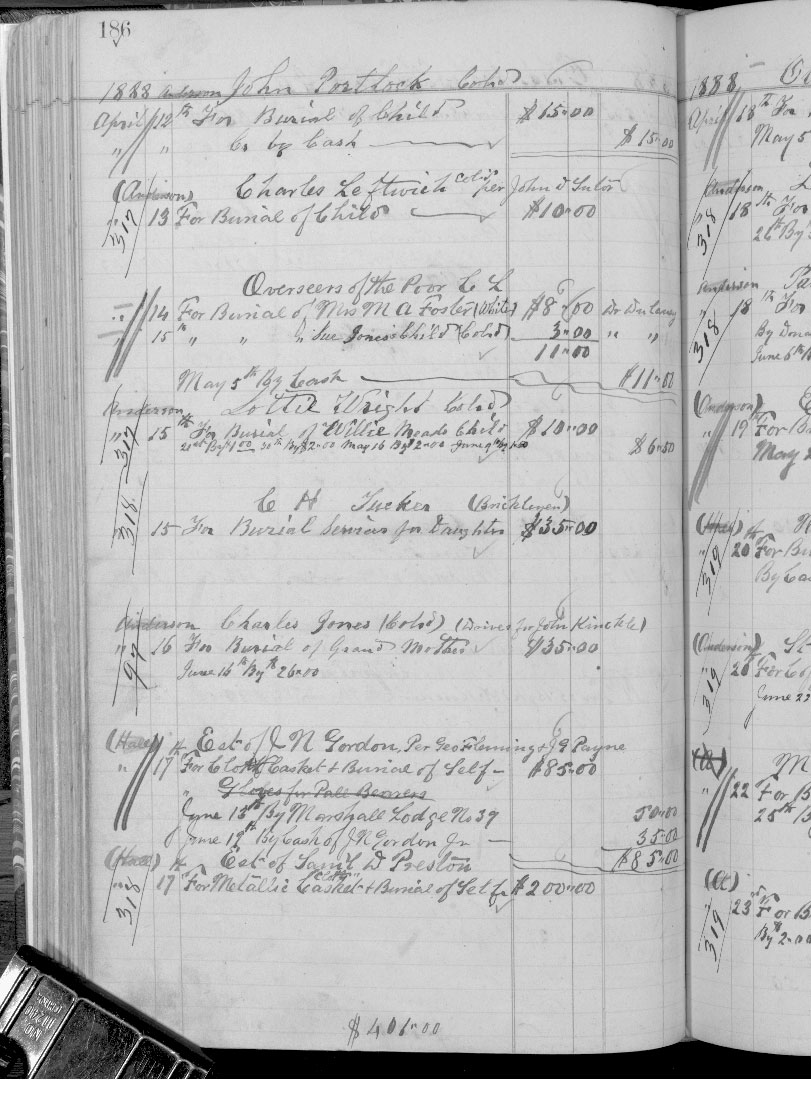 186
1888 Anderson John Portlock Cold
April 12th For Burial of Child $15.00
" " Cr by Cash $15.00
(Anderson) Charles Leftwich Cold per John D Tutor
317 " 13 For Burial of Child $10.00
Overseers of the Poor C L
" 14 For Burial of Mrs M A Foster (White) $8.00 Dr Dulaney
" 15th " " " Sue Jones Child (Cold) 3.00 " "
11.00
May 5th By Cash $11.00
Anderson Lottie Wright Cold
317 " 15th For Burial of Willie Meads Child $10.00
21st By $1.00 30th By $2.00 May 16 By 2.00 June 9th By 1.50 $6.50
C H Tucker (Bricklayer)
318 15 For Burial Services for Daughter $35.00
Anderson Charles Jones (Cold) (Driver for John Kinckle)
97 " 16 For Burial of Grand Mother $35.00
June 16th By $ 26.00
(Hale) Est of J N Gordon, Per Geo Fleming & J G Payne
" 17th For Cloth Casket & Burial of Self $85.00
" Gloves for Pall Bearers
June 15th By Marshall Lodge No 39 50.00
June 19th By Cash of J N Gordon Jr 35.00
$85.00
(Hale) Est of Saml D Preston
318 17th For Metallic "Cloth" Casket & Burial of Self $200.00
$401.00
1888
April 18th For
May 5
Anderson
318 " 18th For
26th By
Anderson
318 " 18th For
By
June 6th
(Anderson)
" 19th For Bu
May 2
(Hale)
319 " 20th For Bu
By Ca
(Anderson) St
319 " 20th For Co
June 22
M
" 22 For B
25th
(Cl)
319 " 23rd For B
By $2.00